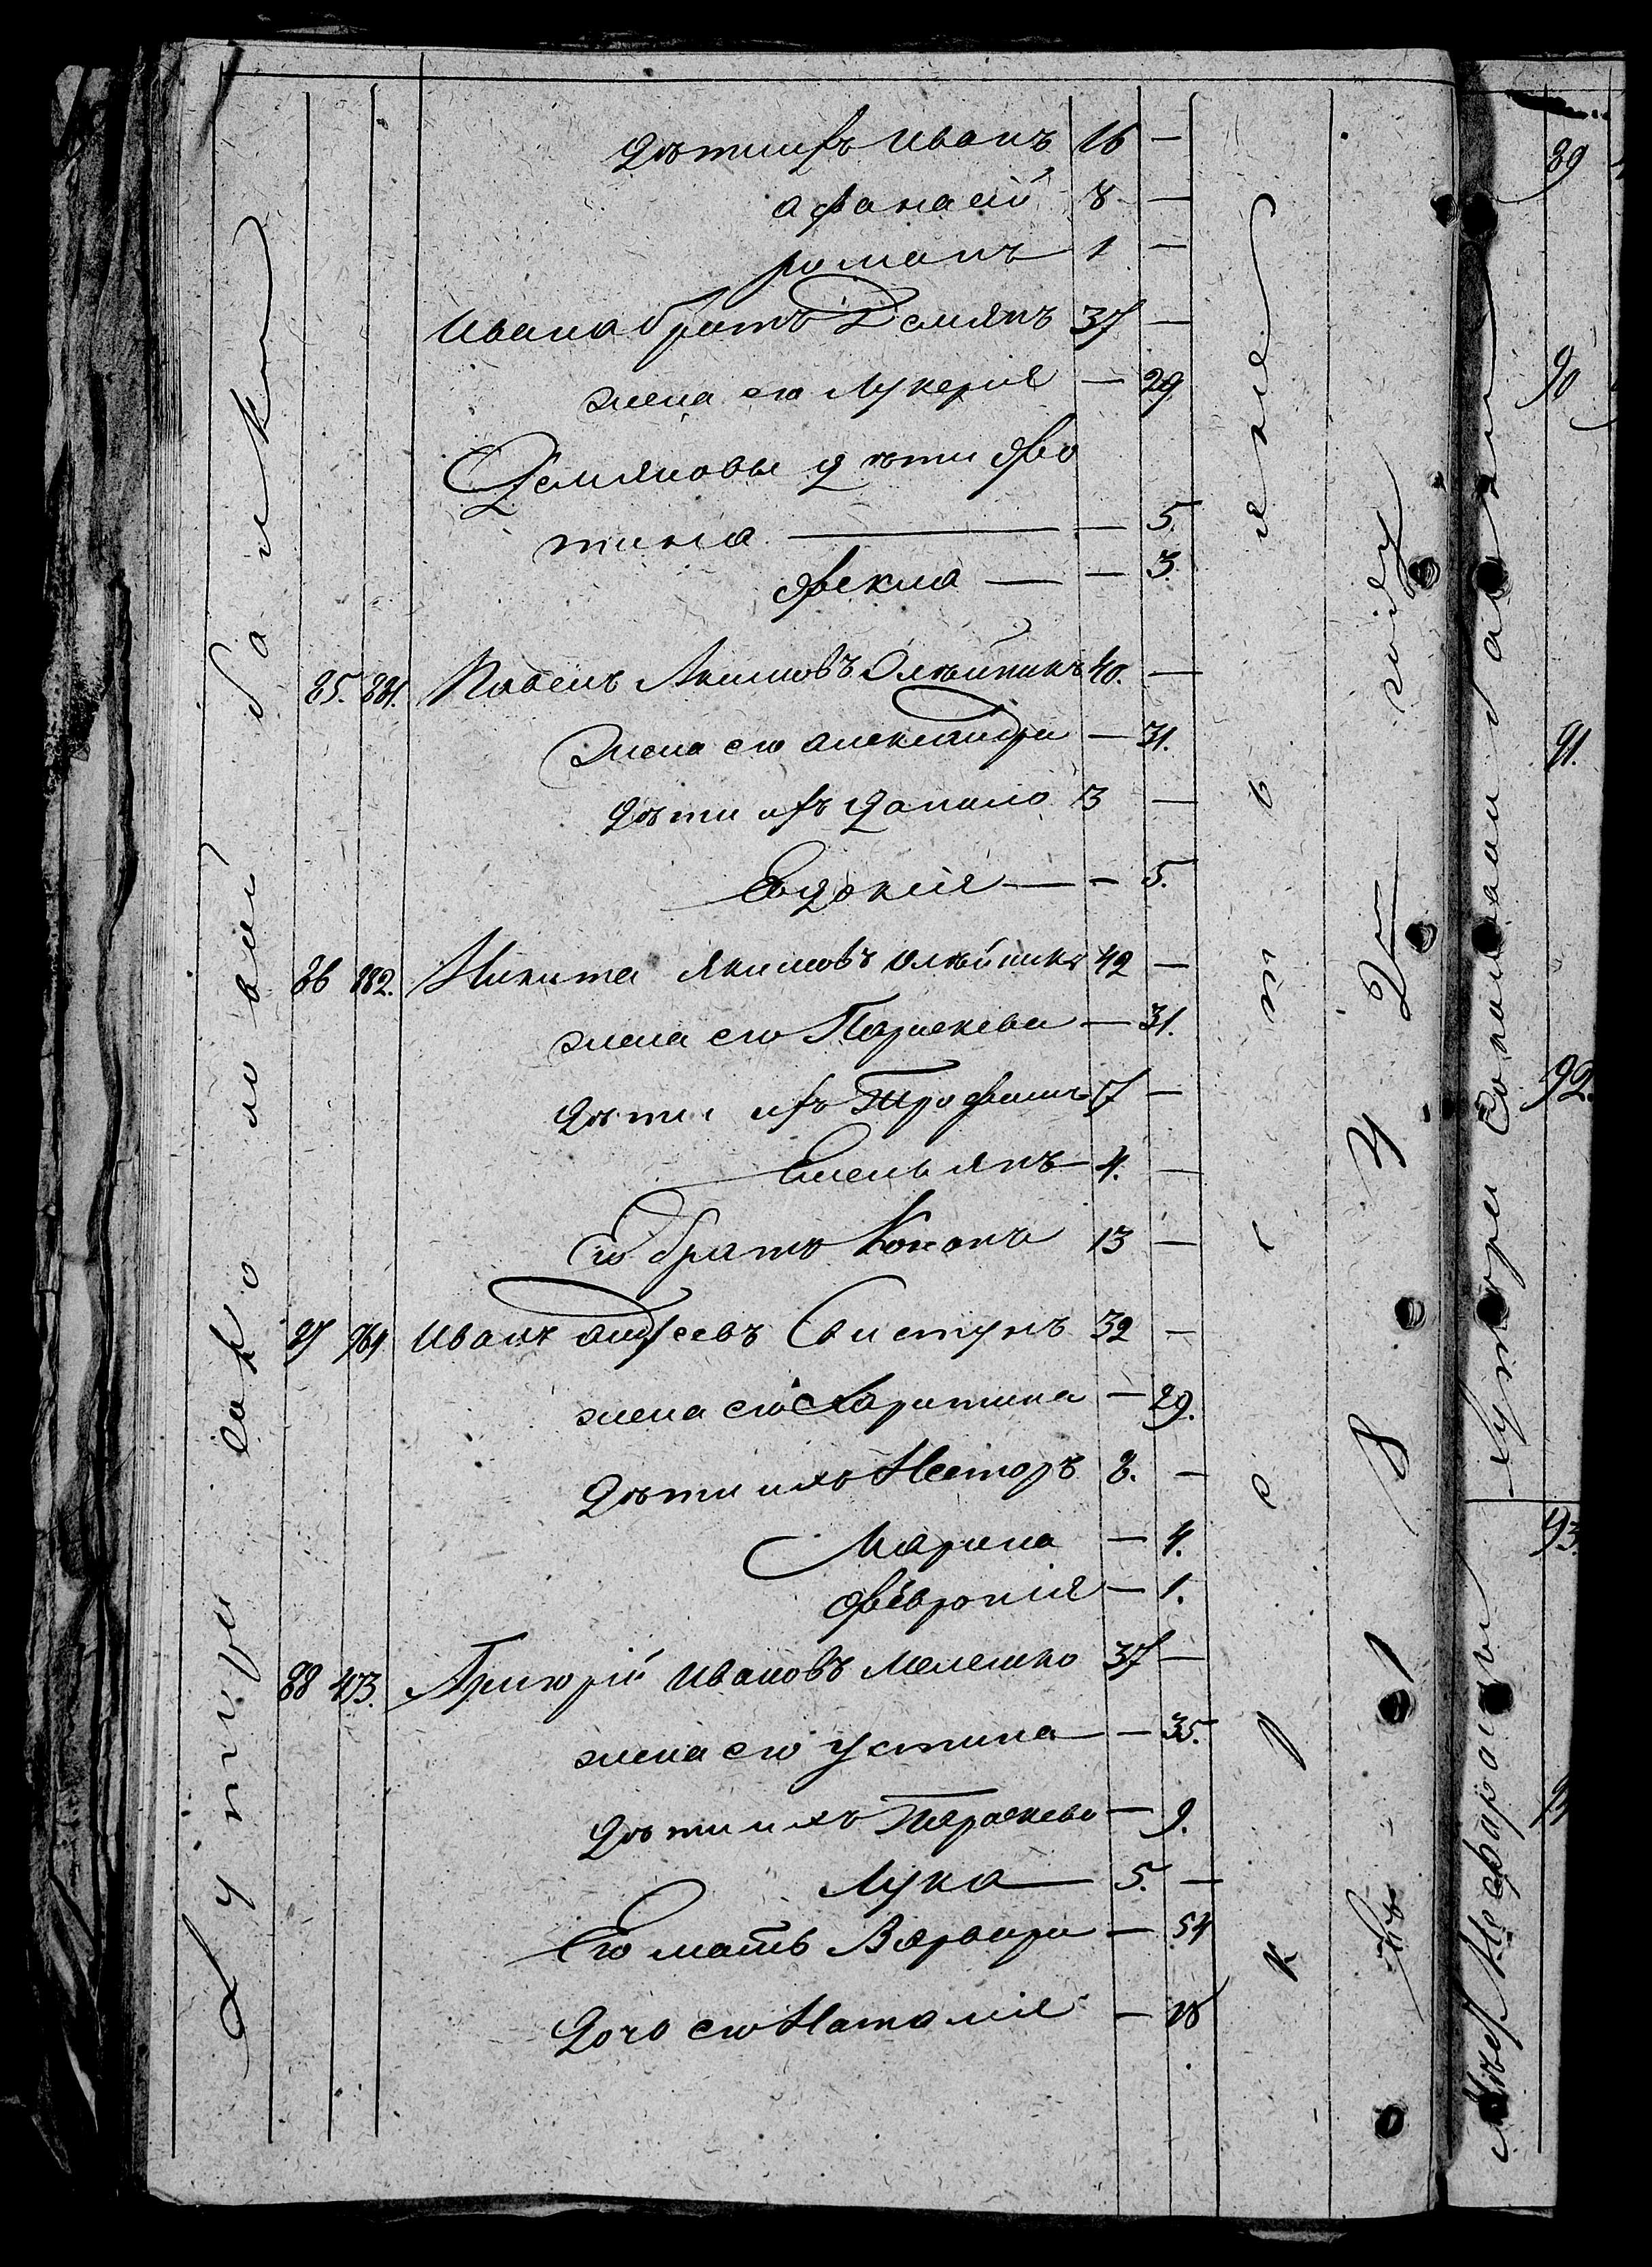 дѣти ихъ Иванъ 16 —
афанасій 8 —
романъ 1 —
Ивана братъ Демянъ 37 —
жена его Лукерія — 29
Демяновы дѣти Фео
тина — — 5.
Фекла — — 3.
85. 881. Павелъ Акимовъ Олѣйникъ 40. —
Жена его александра — 31.
дѣти ихъ данило 13 —
Евдокія — — 5.
86 882. Никита Якимовъ Олѣйникъ 42 —
жена его Параскева — 31.
дѣти ихъ Трофимъ 17 —
Емельянъ — 4. —
Его братъ Кононъ 13 —
87 Иванъ андреевъ Свистунъ 32 —
жена его Харитина — 29.
дѣти ихъ Несторъ 8. —
Марина — 4.
Февронія — 1.
88 473. Григорій Ивановъ Мелешко 37 —
жена его устина — 35.
дѣти ихъ Параскева — 9.
Лука — 5. —
Его мать Варвара — 54
дочь его Наталія — 18
Хутора
въ 1842 году
89
90
91.
92.
93.
хутора